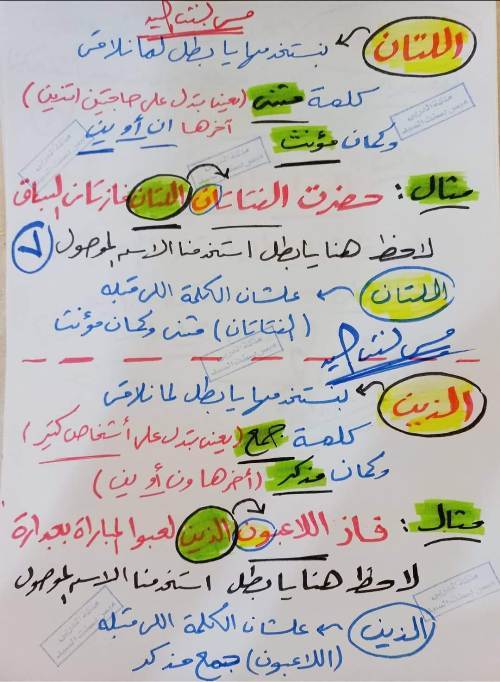 مس لبنت السيد
اللتان ← بنستخدمها يا بطل لما نلاقى
كلمة مثنى (يعنى بتدل على حاجتين اتنين)
وكمان مؤنث آخرها ان أو ين
مثال : حضرت الفتاتان اللتان فازتا فى السباق
لاحظ هنا يا بطل استخدمنا الاسم الموصول
اللتان ← علشان الكلمة اللى قبله
(الفتاتان) مثنى وكمان مؤنث
مس لبنت السيد
الذين ← بنستخدمها يا بطل لما نلاقى
كلمة جمع (يعنى بتدل على أشخاص كتير)
وكمان مذكر (أخرها ون أو ين)
مثال : فاز اللاعبون الذين لعبوا المباراة بجدارة
لاحظ هنا يا بطل استخدمنا الاسم الموصول
الذين ← علشان الكلمة اللى قبله
(اللاعبون) جمع مذكر